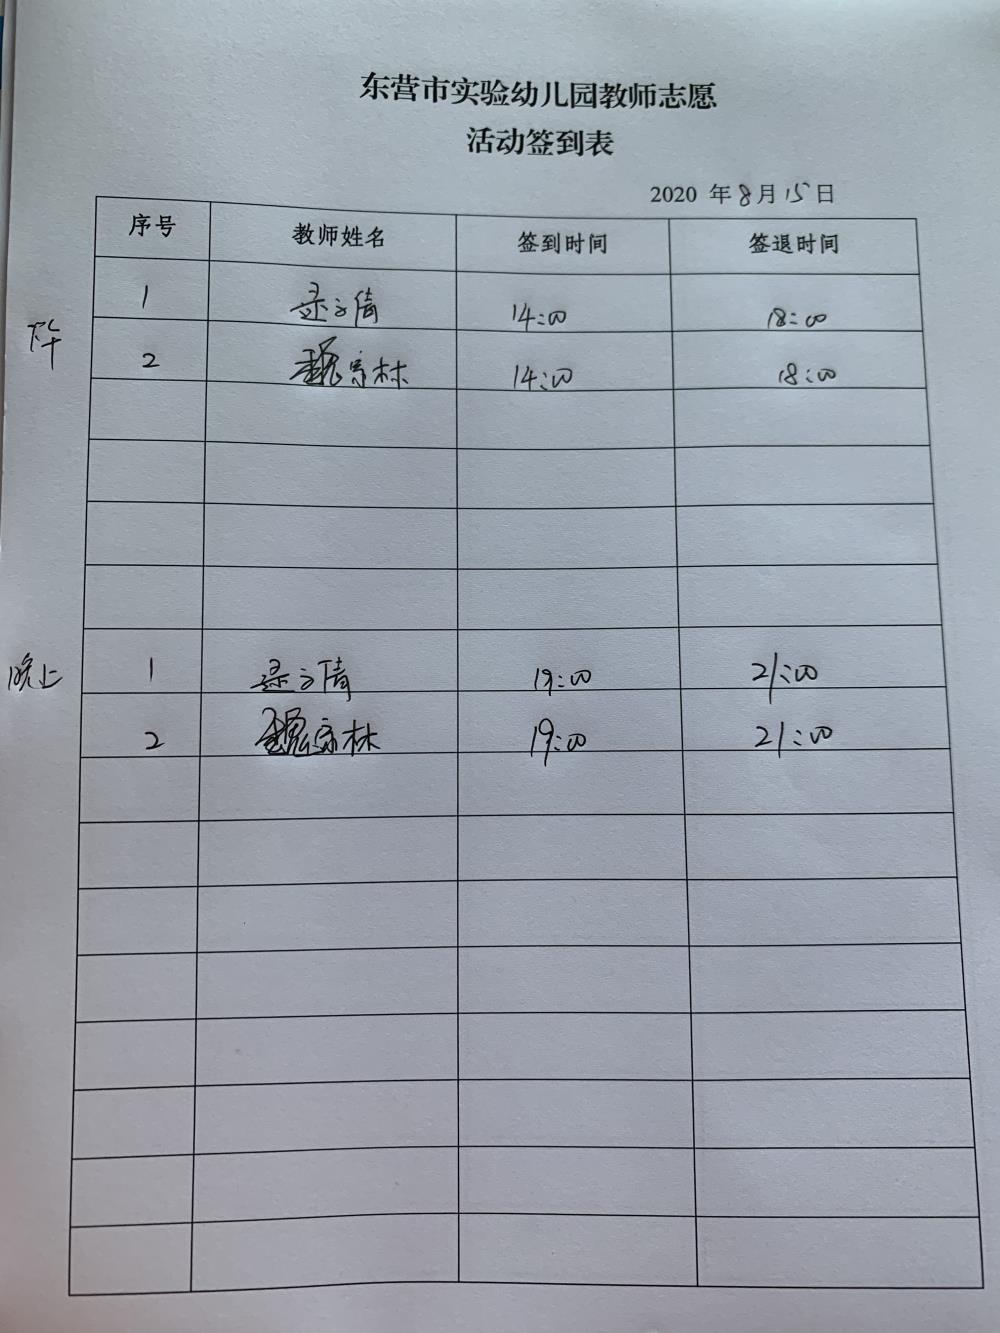 东营市实验幼儿园教师志愿
活动签到表
2020 年 8 月 15 日
序号 教师姓名 签到时间 签退时间
下午
1 14:00 18:00
2 魏宗林 14:00 18:00
晚上
1 19:00 21:00
2 魏宗林 19:00 21:00